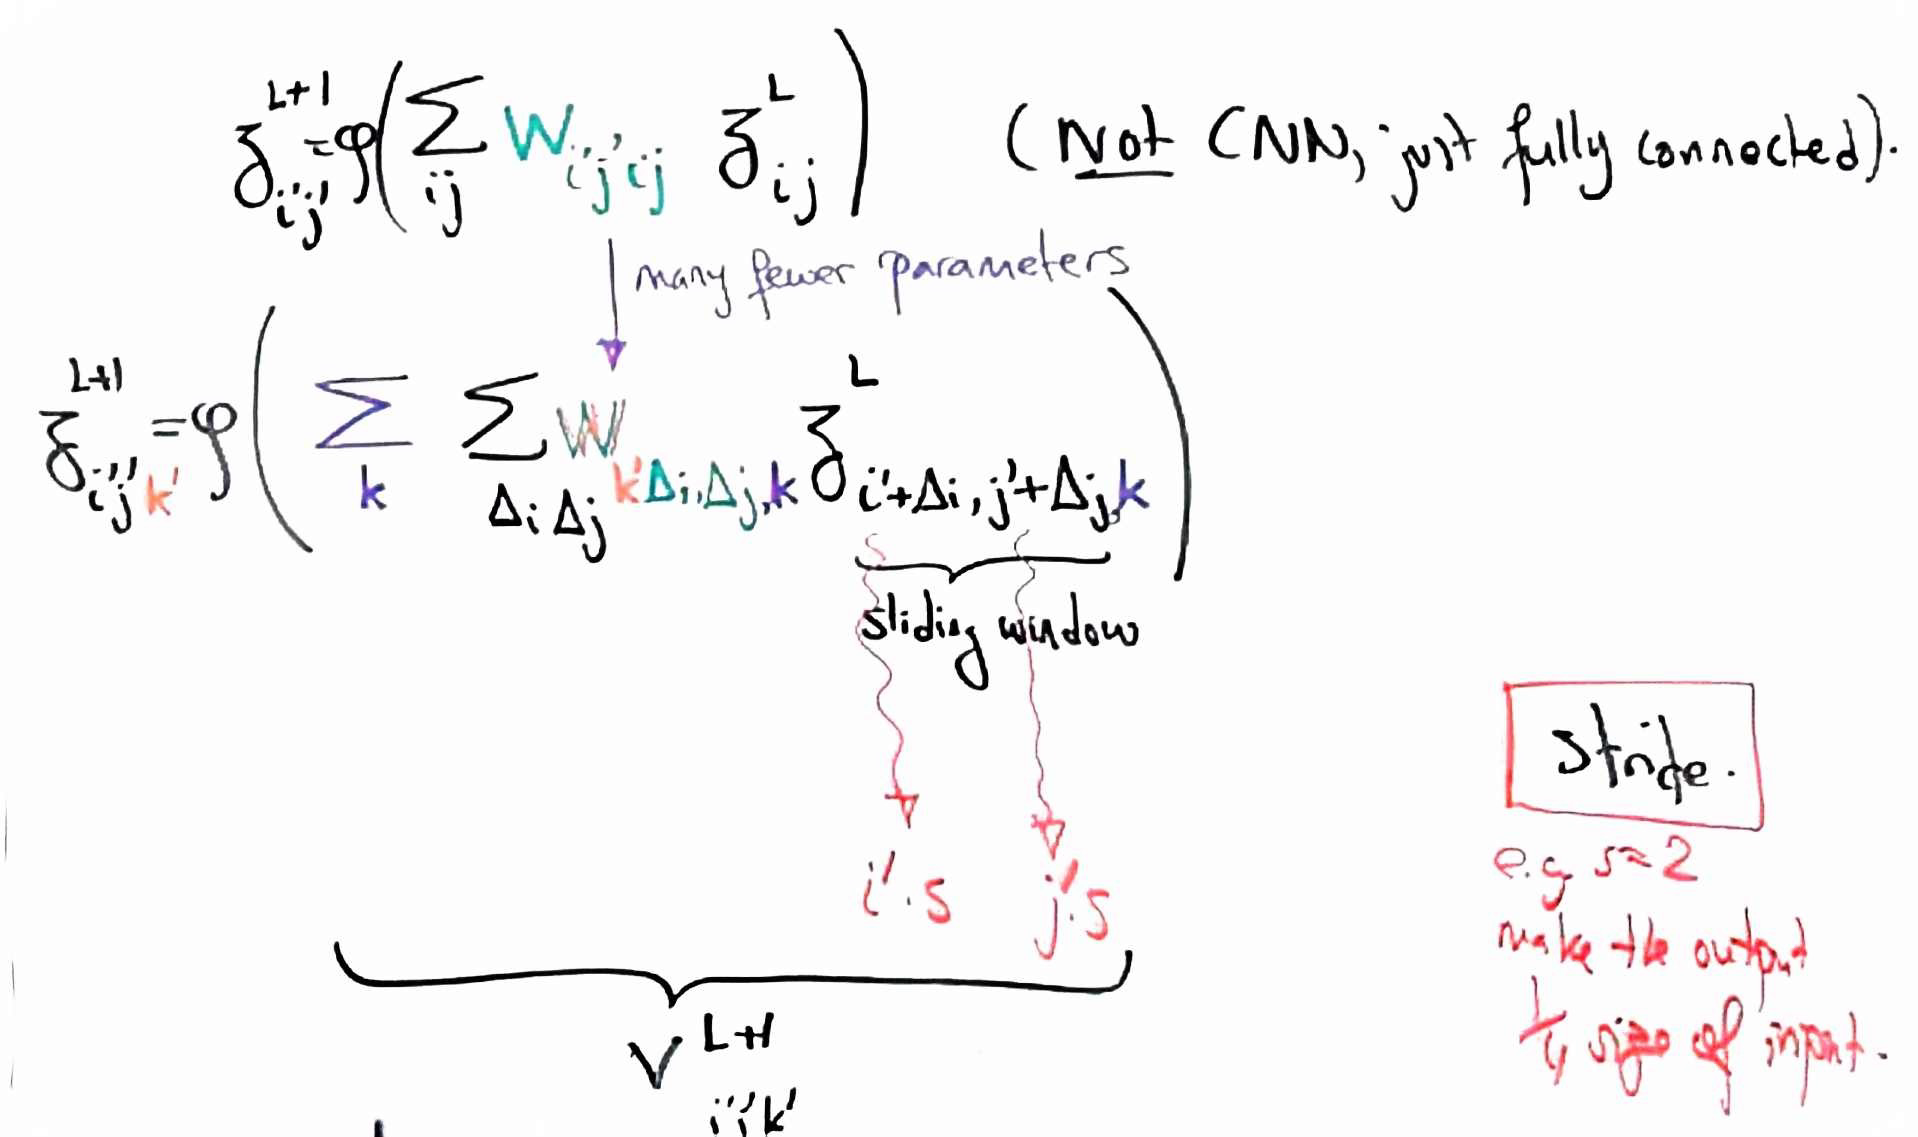 ʒ^{L+1}_{i'j'} = φ( Σ_{ij} W_{i'j'ij} ʒ^{L}_{ij} ) (Not CNN, just fully connected).
many fewer parameters
ʒ^{L+1}_{i'j'k'} = φ( Σ_{k} Σ_{Δi Δj} W_{k'Δi,Δj,k} ʒ^{L}_{i'+Δi, j'+Δj,k} )
sliding window
i'·s j'·s
V^{L+1}_{i'j'k'}
stride.
e.g s=2
make the output
1/4 size of input.